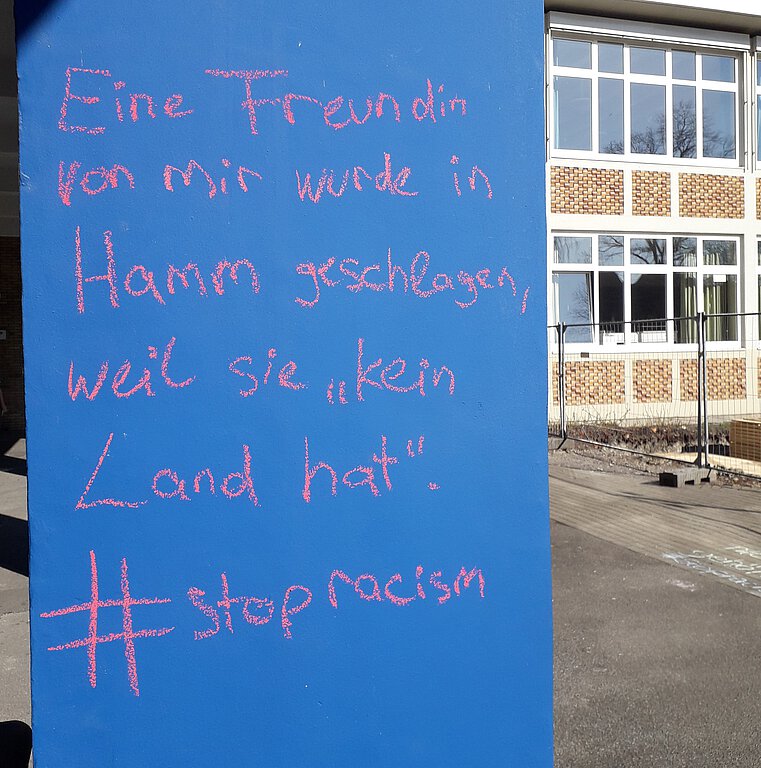 Eine Freundin
von mir wurde in
Hamm geschlagen,
weil sie „kein
Land hat“.
#stopracism